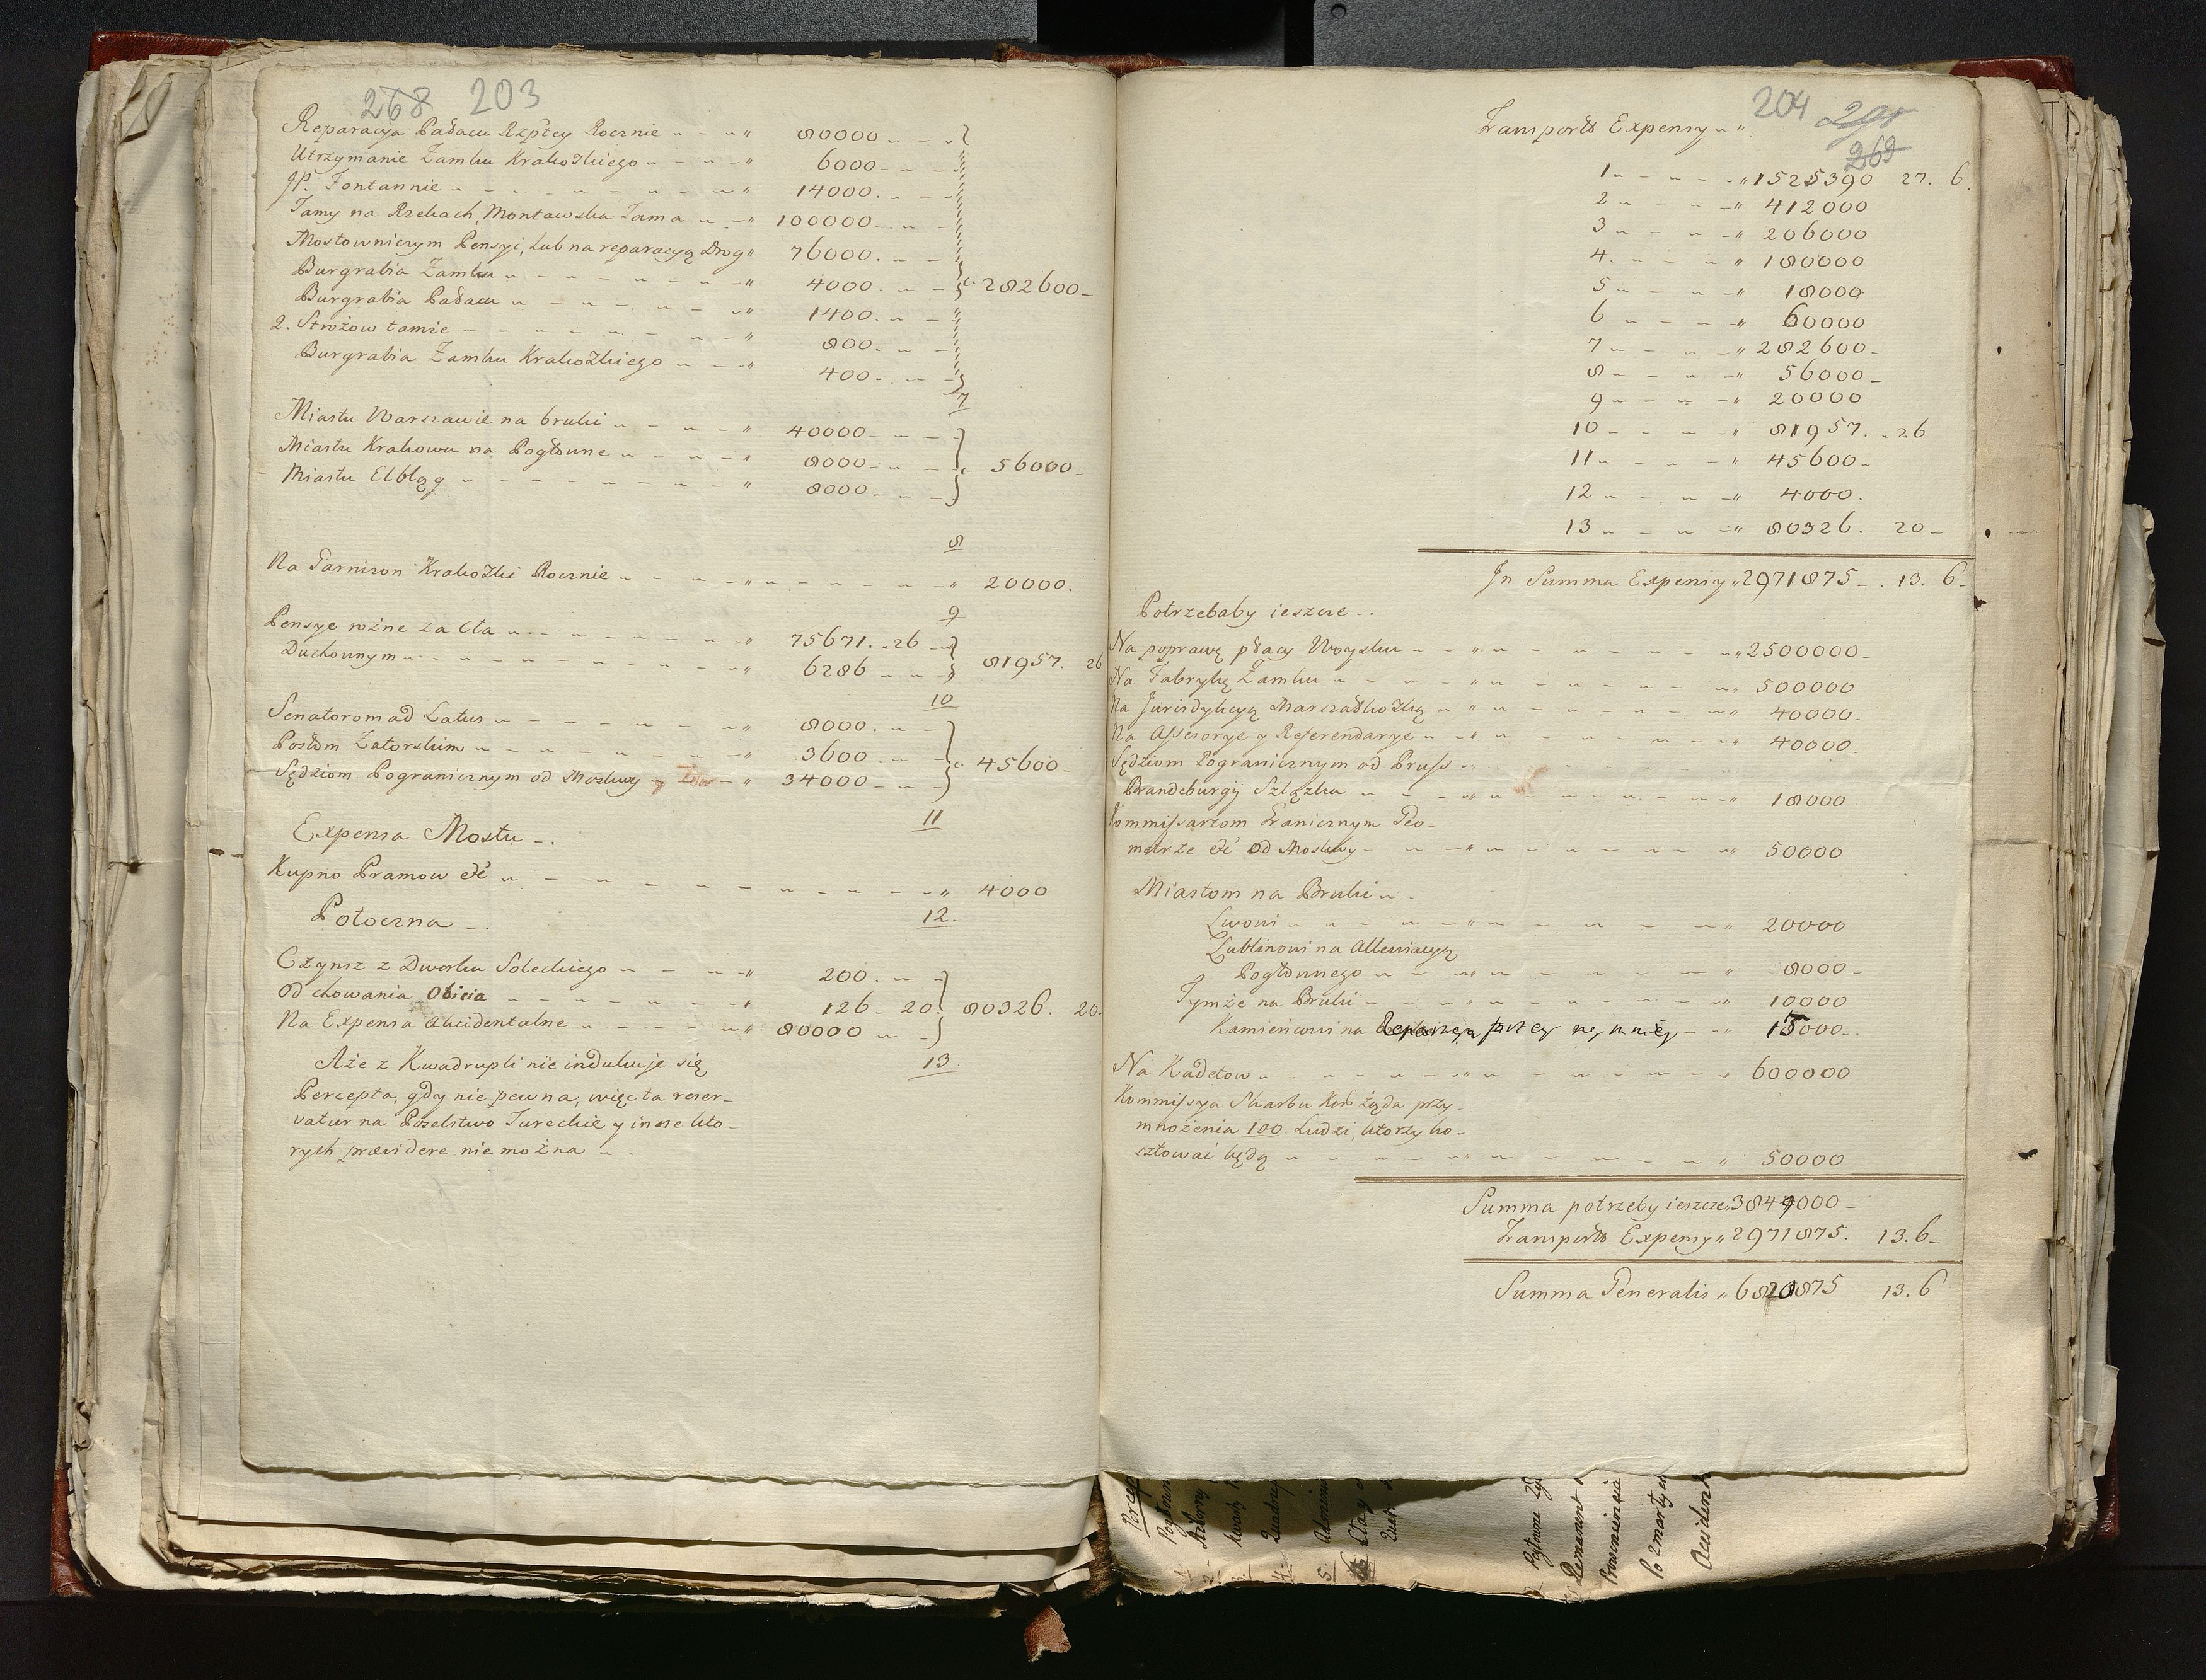 268 203
Reparacya Pałacu Rzptey Rocznie 80000
Utrzymanie Zamku Krakowskiego 6000
JP. Fontannie 14000.
Tamy na Rzekach, Montawska Tama 100000
Mostowniczym Pensyi, lub na reparacyą Drog 76000.
Burgrabia Zamku 4000. 282600
Burgrabia Pałacu 1400.
2. Strożow tamże 800.
Burgrabia Zamku Krakowskiego 400
7
Miastu Warszawie na bruki 40000
Miastu Krakowu na Pogłowne 8000 56000
Miastu Elbląg 8000
8
Na Garnizon Krakowski Rocznie 20000.
9
Pensye rożne za Cła 75671. 26
Duchownym 6286 81957. 26
10
Senatorom ad Latus 8000.
Posłom Zatorskim 3600 45600
Sędziom Pogranicznym od Moskwy 34000
11
Expensa Mostu
Kupno Pramow &c 4000
12.
Potoczna
Czynsz z Dworku Soleckiego 200.
Od chowania Obicia 126 20. 80326. 20
Na Expensa Akcidentalne 80000
13
Aże z Kwadrupli nie indukuje się
Percepta, gdy nie pewna, więc ta reser-
vatur na Poselstwo Tureckie y insze kto-
rych prævidere nie można
204 269
Transport Expensy
1 1525390 27. 6.
2 412000
3 206000
4. 180000
5 18000
6 60000
7 282600
8 56000
9 20000
10 81957. 26
11 45600
12 4000.
13 80326. 20
Jn Summa Expensy 2971875 13. 6
Potrzebaby ieszcze
Na poprawę płacy Woysku 2500000
Na Fabrykę Zamku 500000
Na Jurisdykcyą Marszałkowską 40000.
Na Assessorye y Referendarye 40000.
Sędziom Pogranicznym od Pruss
Brandeburgij Szląska 18000
Kommissarzom Granicznym Geo-
metrze &c od Moskwy 50000
Miastom na Bruki
Lwowi 20000
Lublinowi na Allewiacyą
Pogłownego 8000
Tymże na Bruki 10000
Kamieńcowi na 15000
Na Kadetow 600000
Kommissya Skarbu Kor. żąda przy-
mnożenia 100 Ludzi, ktorzy ko-
sztować będą 50000
Summa potrzeby ieszcze 3849000
Transport Expensy 2971875. 13. 6
Summa Generalis 6820875 13. 6